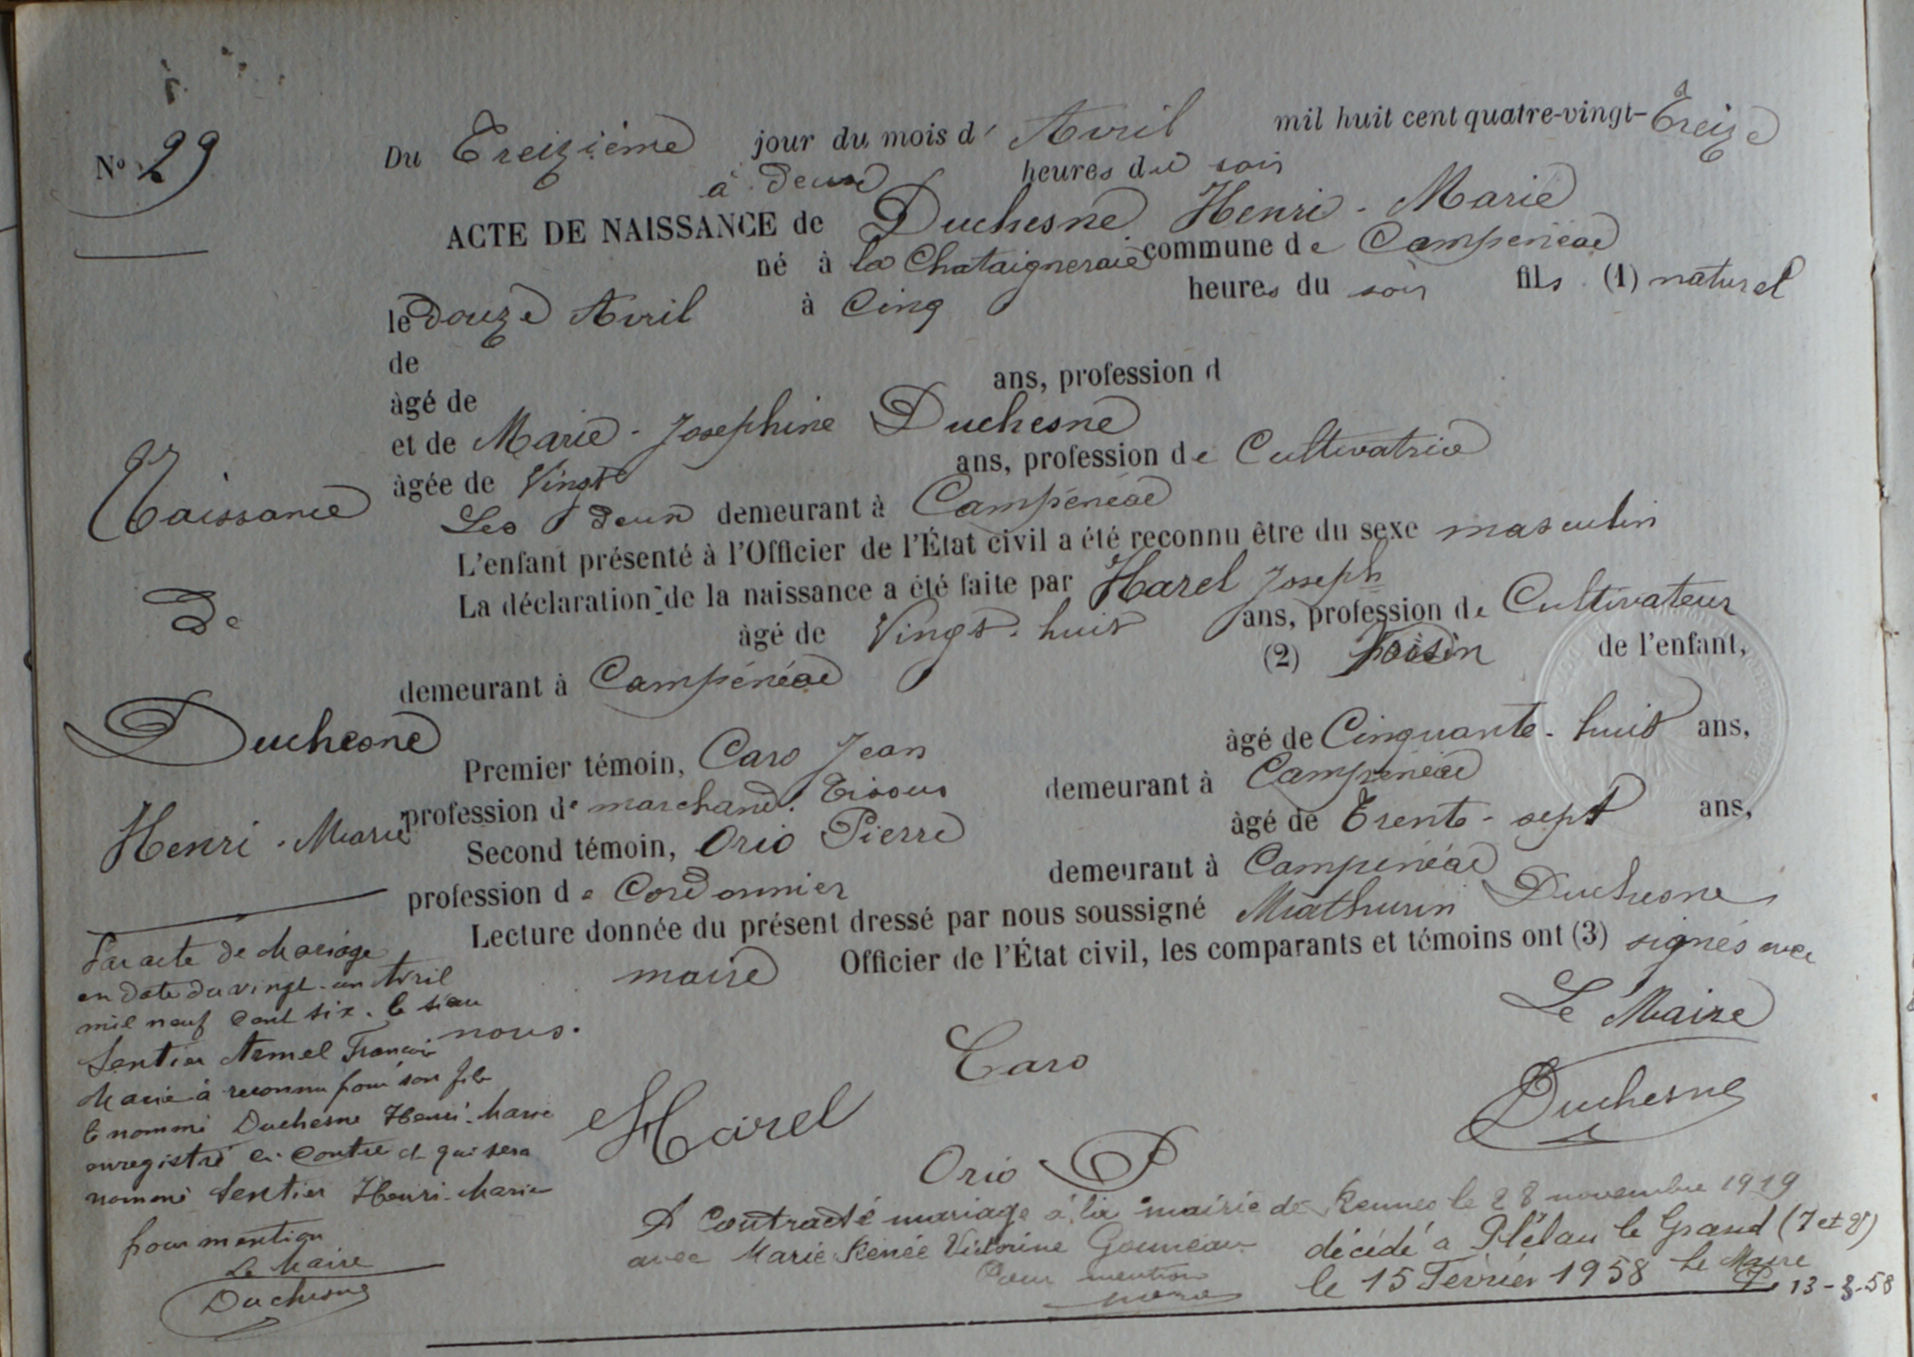 N° 29
Du Treizième jour du mois d' Avril mil huit cent quatre-vingt-Treize
à Deux heures du soir
ACTE DE NAISSANCE de Duchesne Henri - Marie
né à la Chataigneraie commune de Campénéac
le Douze Avril à Cinq heures du soir fils (1) naturel
de
âgé de ans, profession d
et de Marie - Josephine Duchesne
âgée de Vingt ans, profession de Cultivatrice
Les Deux demeurant à Campénéac
L'enfant présenté à l'Officier de l'État civil a été reconnu être du sexe masculin
La déclaration de la naissance a été faite par Harel Joseph
âgé de Vingt-huit ans, profession de Cultivateur
demeurant à Campénéac (2) Voisin de l'enfant,
Premier témoin, Caro Jean âgé de Cinquante-huit ans,
profession de marchand. Tissus demeurant à Campénéac
Second témoin, Orio Pierre âgé de Trente-sept ans,
profession de Cordonnier demeurant à Campénéac
Lecture donnée du présent dressé par nous soussigné Mathurin Duchesne
maire Officier de l'État civil, les comparants et témoins ont (3) signés avec
nous.
Le Maire
Caro
Harel
Duchesne
Orio P
Naissance
De
Duchesne
Henri - Marie
Par acte de Mariage
en date du vingt-un Avril
mil neuf cent six. le sieur
Sentier Armel François
Marie à reconnu pour son fils
le nommé Duchesne Henri-Marie
enregistré ci contre et qui sera
nommé Sentier Henri-Marie
pour mention
Le Maire
Duchesne
A Contracté mariage à la mairie de Rennes le 28 novembre 1919
avec Marie Renée Victorine Gouneau
Pour mention
décédé à Plélan le Grand (I et V)
le 15 Février 1958 Le Maire
13-3-58